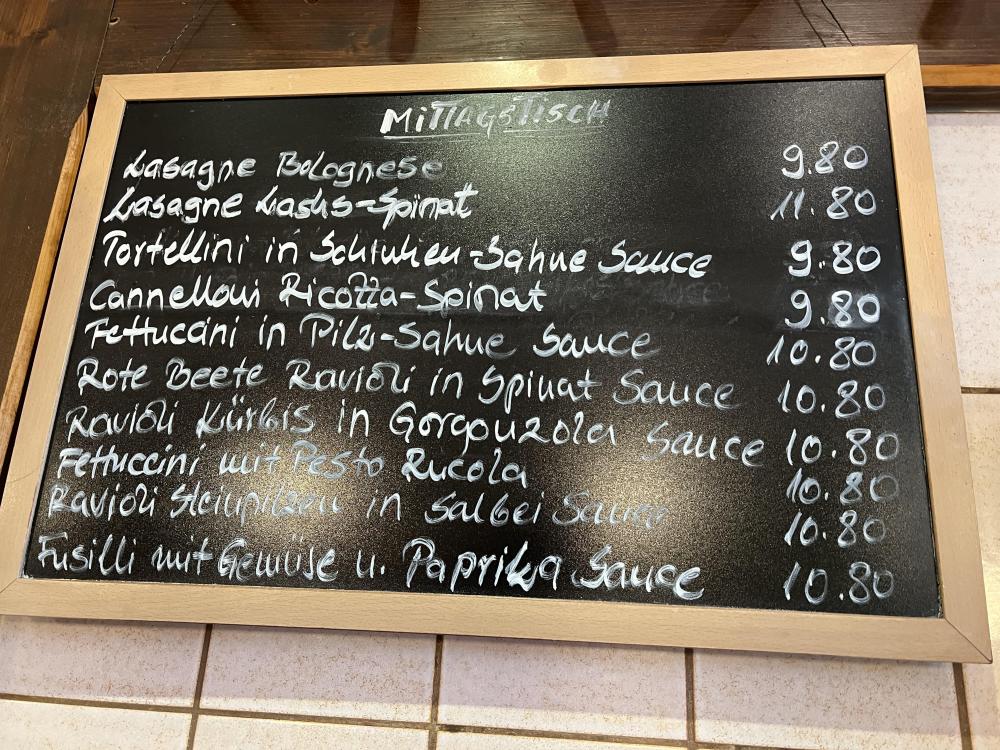 MITTAGSTISCH
Lasagne Bolognese 9.80
Lasagne Lachs-Spinat 11.80
Tortellini in Schinken-Sahne Sauce 9.80
Cannelloni Ricotta-Spinat 9.80
Fettuccini in Pilz-Sahne Sauce 10.80
Rote Beete Ravioli in Spinat Sauce 10.80
Ravioli Kürbis in Gorgonzola Sauce 10.80
Fettuccini mit Pesto Rucola 10.80
Ravioli Steinpilzen in Salbei Sauce 10.80
Fusilli mit Gemüse u. Paprika Sauce 10.80